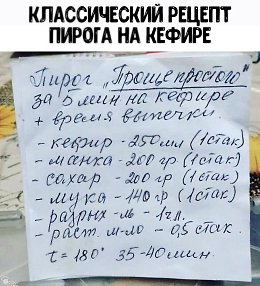 КЛАССИЧЕСКИЙ РЕЦЕПТ
ПИРОГА НА КЕФИРЕ
Пирог „Проще простого"
за 5 мин на кефире
+ время выпечки.
- кефир - 250 мл (1 стак)
- манка - 200 гр (1 стак)
- сахар - 200 гр (1 стак)
- мука - 140 гр (1 стак)
- разрых-ль - 1 ч л.
- раст. м-ло - 0,5 стак.
t = 180° 35-40 мин.